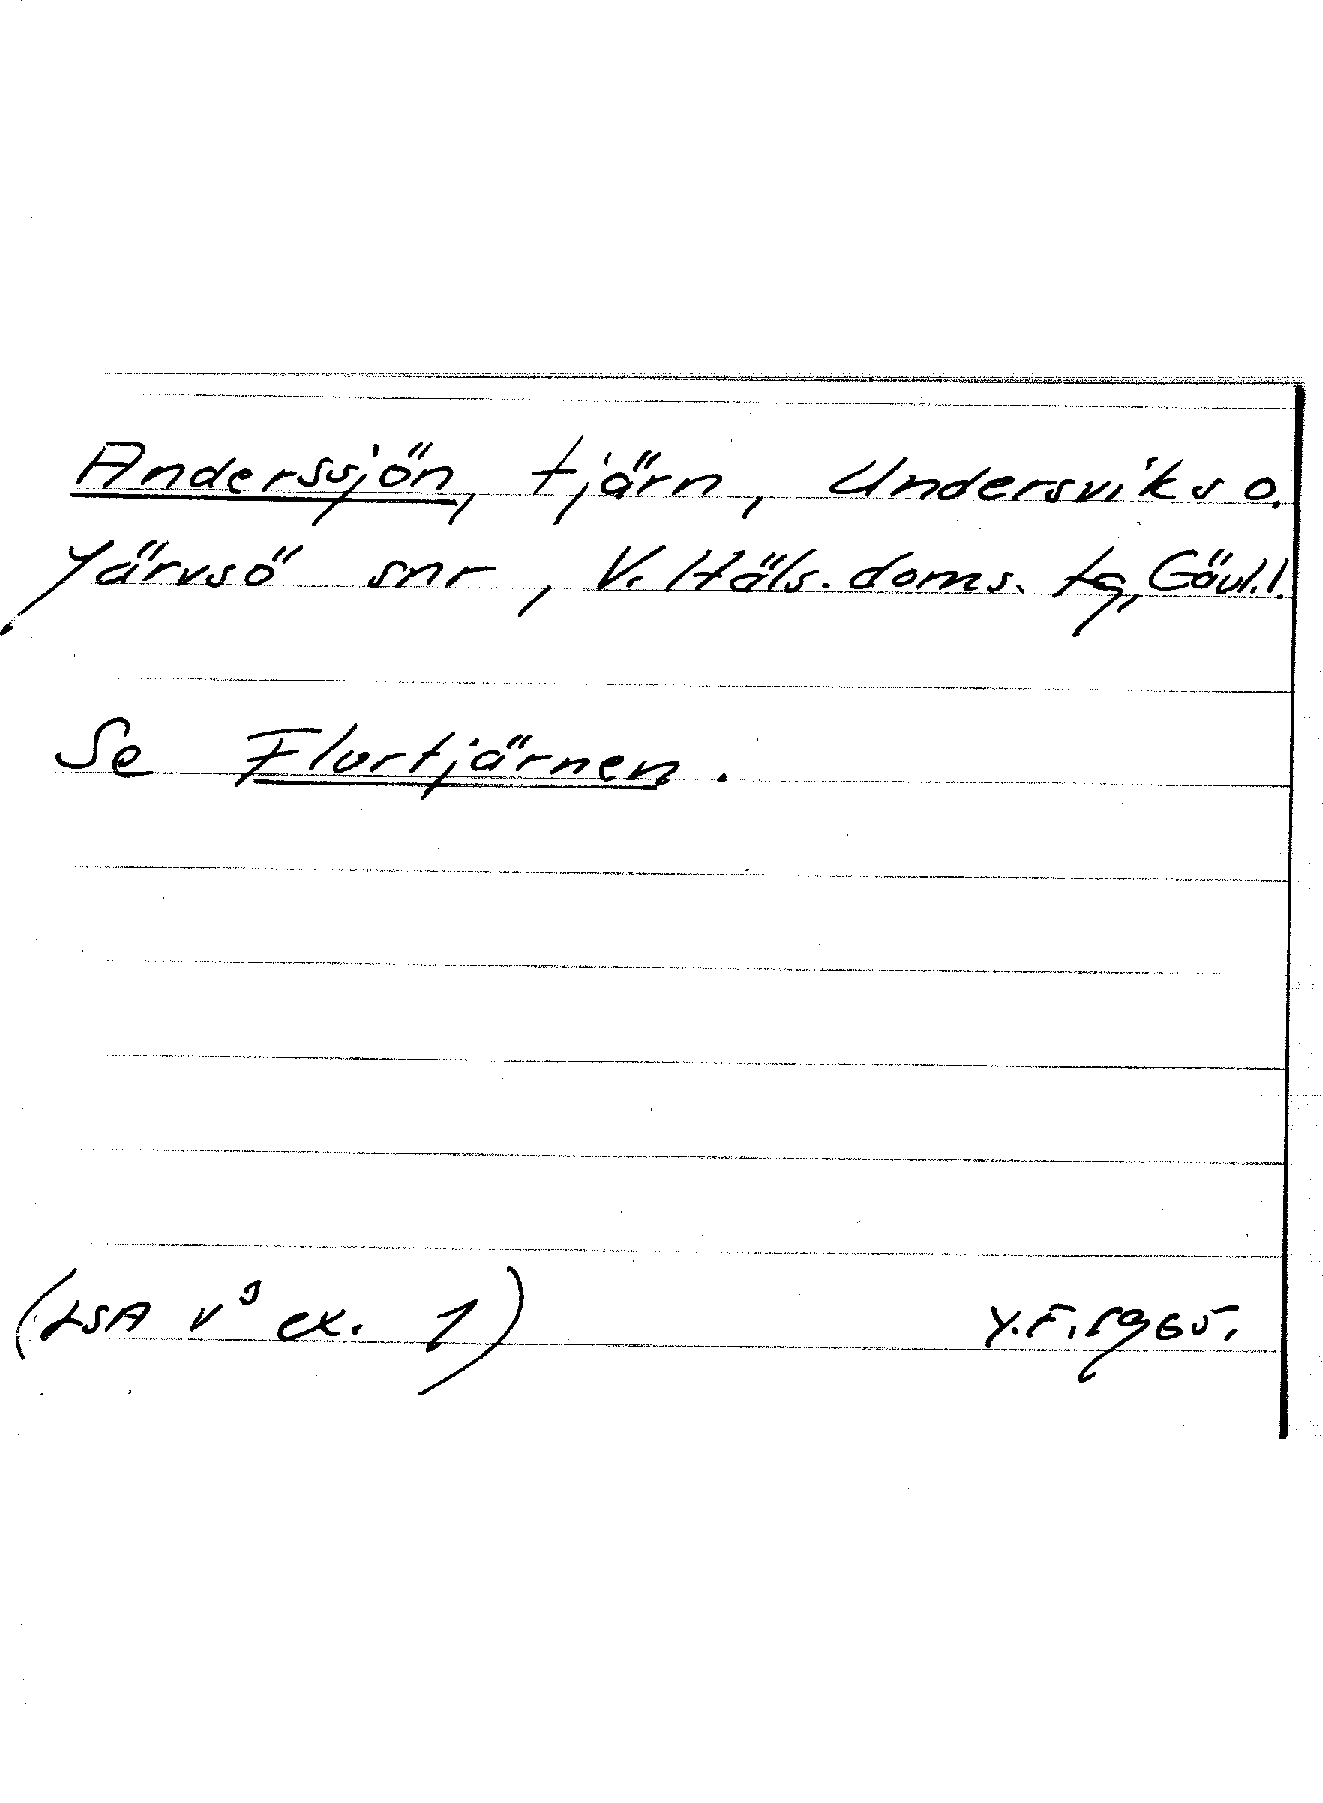 Anderssjön, tjärn, Undersviks o.
Järvsö snr, V. Häls. doms. tg, Gävl.l.
Se Flurtjärnen.
(LSA v³ ex. 1) Y.F. 1965.